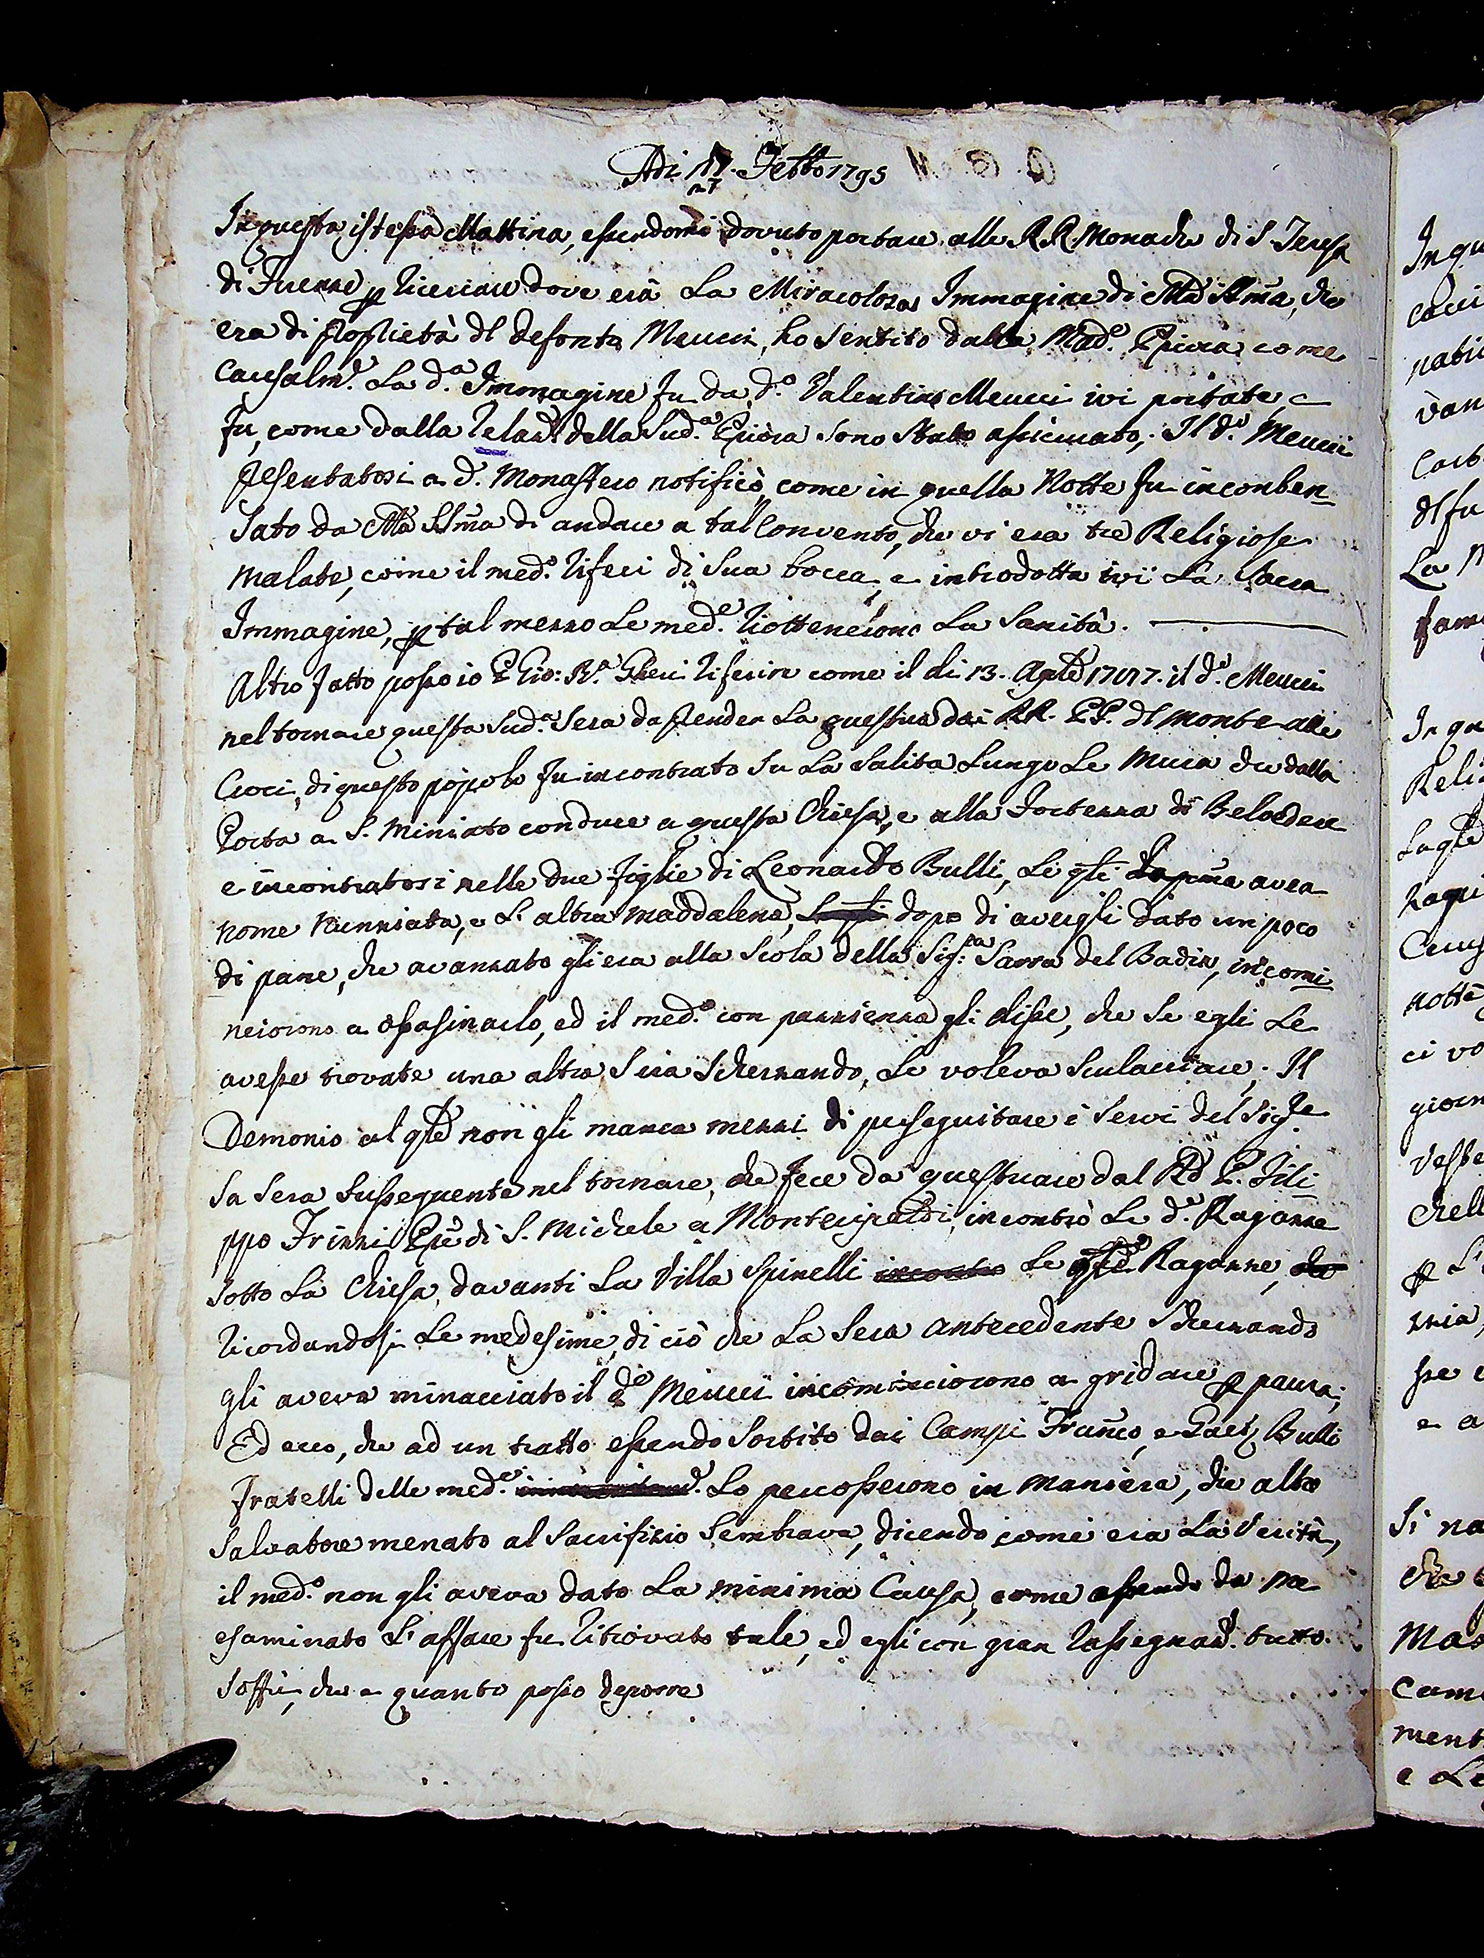 Adi 17. Settb 1795
27
In questa istessa Mattina, essendomi dovuto portare alle RR. Monache di S. Teresa
di Firenze p ricercare dove era La Miracolosa Immagine di Ma SSma, che
era di proprietà dl defonto Meucci, ho sentito dalla Mad.e Priora come
Causalm.e La d.a Immagine fu da d.o Valentino Meucci ivi portata, e
fu, come dalla Relaz.e della Sud.a Priora sono stato assicurato, Il d.o Meucci
presentatosi a d.o Monastero notificò, come in quella Notte fu inconben=
sato da Ma SSma di andare a tal Convento, che vi era tre Religiose
malate, come il med.o riferì di sua bocca, e introdotta ivi La Sacra
Immagine, p tal mezzo Le med.e riottenerono La Sanità.
Altro fatto posso io P Gio: Ba riferire come il dì 13. Aple il d.o Meucci
nel tornare questa sud.a sera da prender La questua dai RR. PP. dl Monte alle
Croci, di questo popolo fu incontrato su La salita Lungo Le Mura che dalla
Porta a S. Miniato conduce a questa Chiesa, e alla Fortezza di Belvedere
e incontratosi nelle due figlie di Leonardo Bulli, Le qli La prima avea
nome Nunziata, e L' altra Maddalena, dopo di avergli dato un poco
di pane, che avanzato gli era alla Scola della Sig.ra Sarra del Badia, incomi
nciorono a assasinarlo, ed il med.o con pazzienza gli disse, che se egli Le
avesse trovate una altra sera scherzando, Le voleva sculacciare. Il
Demonio al qle non gli manca mezzi di perseguitare i servi del Sig.re
La sera susseguente nel tornare, che fece da questuare dal Rd P. Fili
ppo Frizzi Pre di S. Michele a Monteripaldi, incontrò Le d.e Ragazze
sotto La Chiesa, davanti La Villa Spinelli incontrò Le Ragazze, che
ricordandosi Le medesime, di ciò che La sera antecedente scherzando
gli aveva minacciato il d.o Meucci incominciorono a gridare p paura;
Ed ecco, che ad un tratto essendo sortito dai Campi Franco, e Gaet. Bulli
fratelli delle med.e Lo percosserono in maniera, che altro
Salvatore menato al Sacrifizio sembrava, dicendo come era La Verità,
il med.o non gli aveva dato La minima Causa, come essendo da me
esaminato L' affare fu ritrovato tale, ed egli con gran rassegnaz.e tutto
soffrì, che a quanto posso deporre